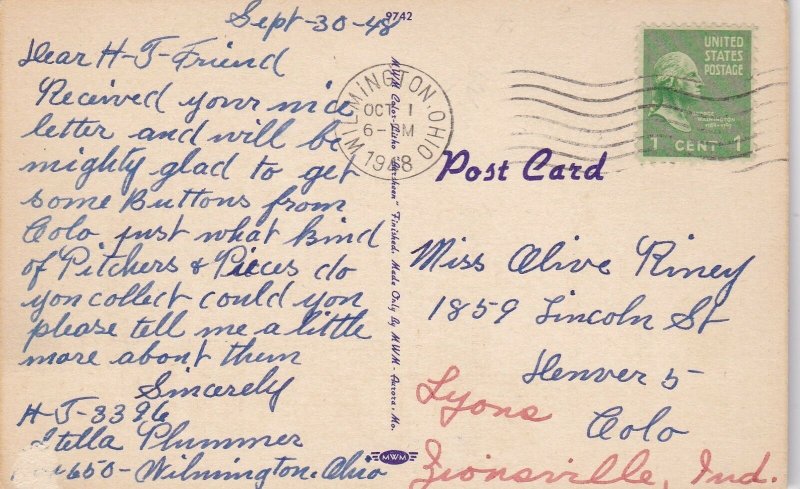 Sept-30-48
9742
Dear H-J-Friend
Received your nice
letter and will be
mighty glad to get
some Buttons from
Colo just what kind
of Pitchers & Pieces do
you collect could you
please tell me a little
more about them
Sincerely
H-J-3396
Stella Plummer
650-Wilmington. Ohio
MWM Color-Litho "Finished. Made Only By MWM - Aurora. Mo.
MWM
WILMINGTON, OHIO
OCT 1
6-PM
1948
UNITED
STATES
POSTAGE
GEORGE
WASHINGTON
1 CENT 1
Post Card
Miss Olive Riney
1859 Lincoln St
Denver 5
Colo
Lyons
Zionsville, Ind.